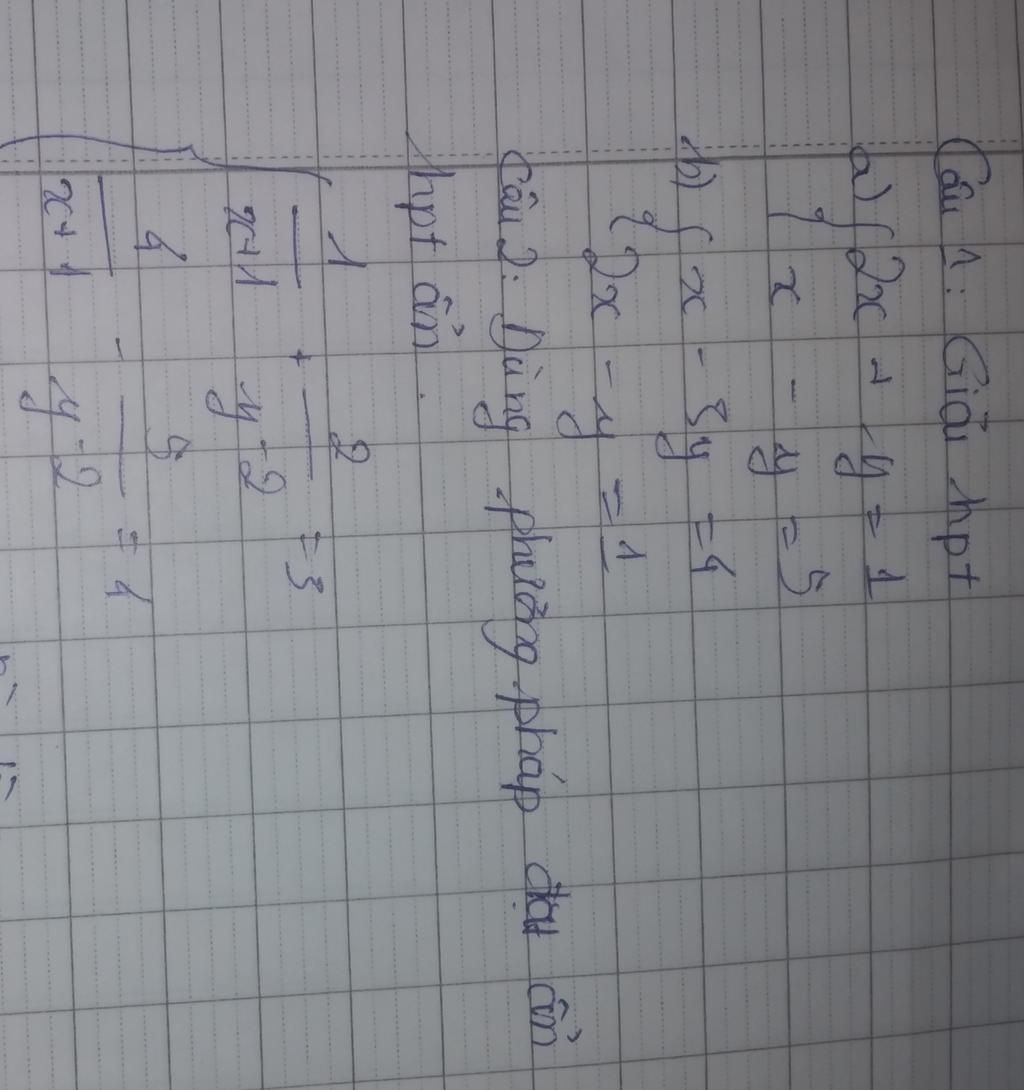 Câu 1: Giải hpt
a) { 2x + y = 1
x - y = 5
b) { x - 3y = 4
2x - y = 1
Câu 2: Dùng phương pháp đặt ẩn
hpt ẩn.
{ 1/(x+1) + 2/(y-2) = 3
4/(x+1) - 5/(y-2) = 4